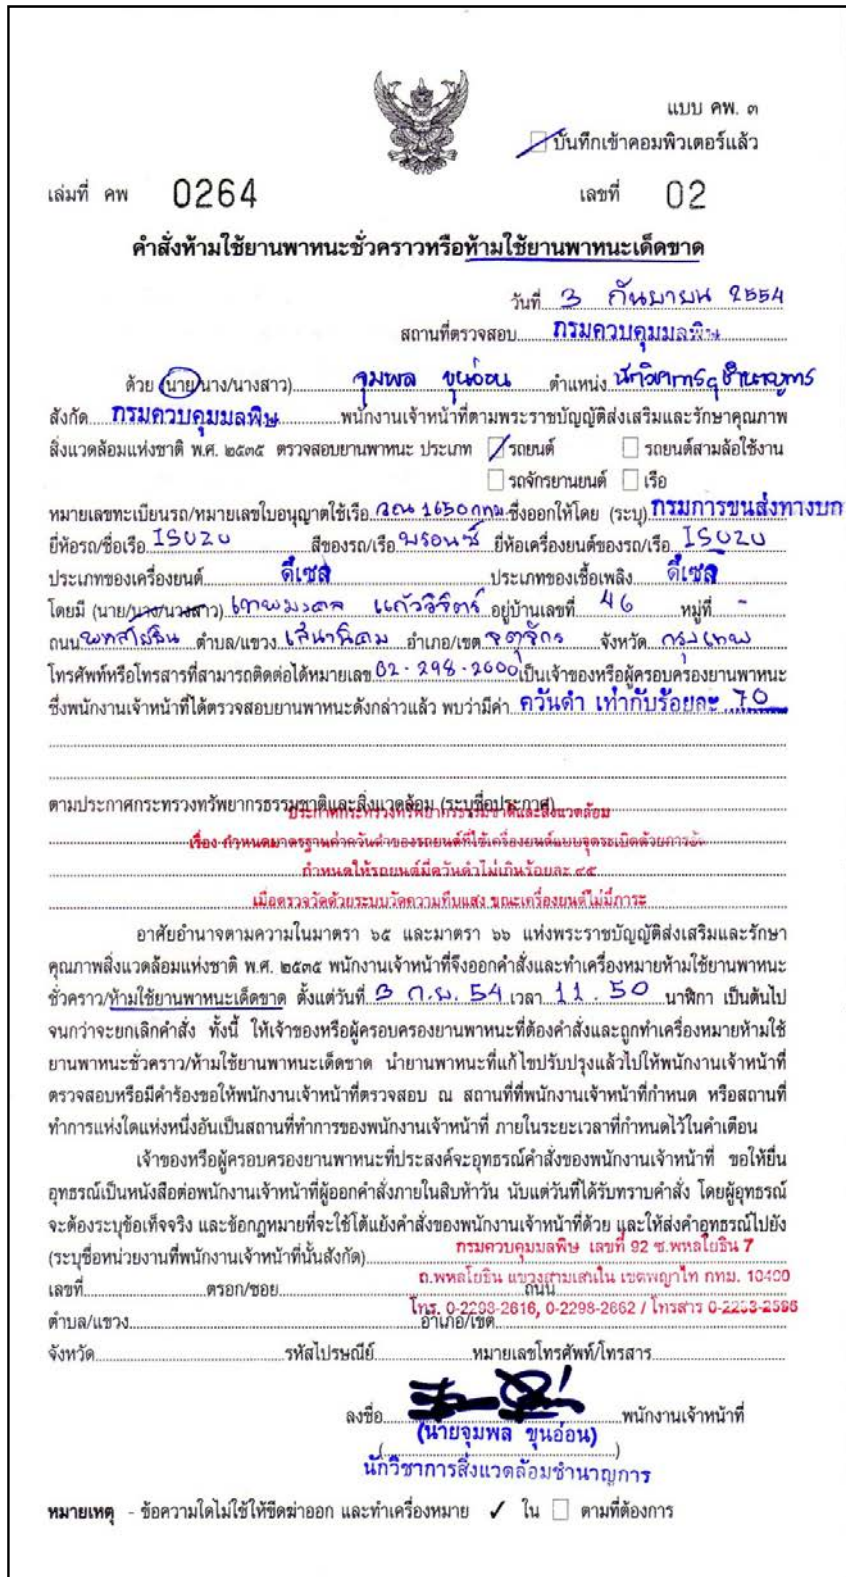 แบบ คพ. ๓
บันทึกเข้าคอมพิวเตอร์แล้ว
เล่มที่ คพ 0264 เลขที่ 02
คำสั่งห้ามใช้ยานพาหนะชั่วคราวหรือห้ามใช้ยานพาหนะเด็ดขาด
วันที่ 3 กันยายน 2554
สถานที่ตรวจสอบ กรมควบคุมมลพิษ
ด้วย (นาย/นาง/นางสาว) จุมพล ขุนอ่อน ตำแหน่ง นักวิชาการฯชำนาญการ
สังกัด กรมควบคุมมลพิษ พนักงานเจ้าหน้าที่ตามพระราชบัญญัติส่งเสริมและรักษาคุณภาพ
สิ่งแวดล้อมแห่งชาติ พ.ศ. ๒๕๓๕ ตรวจสอบยานพาหนะ ประเภท รถยนต์ รถยนต์สามล้อใช้งาน
รถจักรยานยนต์ เรือ
หมายเลขทะเบียนรถ/หมายเลขใบอนุญาตใช้เรือ วณ 1650 กทม ซึ่งออกให้โดย (ระบุ) กรมการขนส่งทางบก
ยี่ห้อรถ/ชื่อเรือ ISUZU สีของรถ/เรือ บรอนซ์ ยี่ห้อเครื่องยนต์ของรถ/เรือ ISUZU
ประเภทของเครื่องยนต์ ดีเซล ประเภทของเชื้อเพลิง ดีเซล
โดยมี (นาย/นาง/นางสาว) เทพมงคล แก้ววิจิตร์ อยู่บ้านเลขที่ 46 หมู่ที่ -
ถนน พหลโยธิน ตำบล/แขวง เสนานิคม อำเภอ/เขต จตุจักร จังหวัด กรุงเทพ
โทรศัพท์หรือโทรสารที่สามารถติดต่อได้หมายเลข 02-298-2000 เป็นเจ้าของหรือผู้ครอบครองยานพาหนะ
ซึ่งพนักงานเจ้าหน้าที่ได้ตรวจสอบยานพาหนะดังกล่าวแล้ว พบว่ามีค่า ควันดำ เท่ากับร้อยละ 70
ตามประกาศกระทรวงทรัพยากรธรรมชาติและสิ่งแวดล้อม (ระบุชื่อประกาศ)
ประกาศกระทรวงทรัพยากรธรรมชาติและสิ่งแวดล้อม
เรื่อง กำหนดมาตรฐานค่าควันดำของรถยนต์ที่ใช้เครื่องยนต์แบบจุดระเบิดด้วยการอัด
กำหนดให้รถยนต์มีควันดำไม่เกินร้อยละ ๔๕
เมื่อตรวจวัดด้วยระบบวัดความทึบแสง ขณะเครื่องยนต์ไม่มีภาระ
อาศัยอำนาจตามความในมาตรา ๖๕ และมาตรา ๖๖ แห่งพระราชบัญญัติส่งเสริมและรักษา
คุณภาพสิ่งแวดล้อมแห่งชาติ พ.ศ. ๒๕๓๕ พนักงานเจ้าหน้าที่จึงออกคำสั่งและทำเครื่องหมายห้ามใช้ยานพาหนะ
ชั่วคราว/ห้ามใช้ยานพาหนะเด็ดขาด ตั้งแต่วันที่ 3 ก.ย. 54 เวลา 11.50 นาฬิกา เป็นต้นไป
จนกว่าจะยกเลิกคำสั่ง ทั้งนี้ ให้เจ้าของหรือผู้ครอบครองยานพาหนะที่ต้องคำสั่งและถูกทำเครื่องหมายห้ามใช้
ยานพาหนะชั่วคราว/ห้ามใช้ยานพาหนะเด็ดขาด นำยานพาหนะที่แก้ไขปรับปรุงแล้วไปให้พนักงานเจ้าหน้าที่
ตรวจสอบหรือมีคำร้องขอให้พนักงานเจ้าหน้าที่ตรวจสอบ ณ สถานที่ที่พนักงานเจ้าหน้าที่กำหนด หรือสถานที่
ทำการแห่งใดแห่งหนึ่งอันเป็นสถานที่ทำการของพนักงานเจ้าหน้าที่ ภายในระยะเวลาที่กำหนดไว้ในคำเตือน
เจ้าของหรือผู้ครอบครองยานพาหนะที่ประสงค์จะอุทธรณ์คำสั่งของพนักงานเจ้าหน้าที่ ขอให้ยื่น
อุทธรณ์เป็นหนังสือต่อพนักงานเจ้าหน้าที่ผู้ออกคำสั่งภายในสิบห้าวัน นับแต่วันที่ได้รับทราบคำสั่ง โดยผู้อุทธรณ์
จะต้องระบุข้อเท็จจริง และข้อกฎหมายที่จะใช้โต้แย้งคำสั่งของพนักงานเจ้าหน้าที่ด้วย และให้ส่งคำอุทธรณ์ไปยัง
(ระบุชื่อหน่วยงานที่พนักงานเจ้าหน้าที่นั้นสังกัด) กรมควบคุมมลพิษ เลขที่ 92 ซ.พหลโยธิน 7
เลขที่ ตรอก/ซอย ถนน ถ.พหลโยธิน แขวงสามเสนใน เขตพญาไท กทม. 10400
ตำบล/แขวง อำเภอ/เขต โทร. 0-2298-2616, 0-2298-2662 / โทรสาร
จังหวัด รหัสไปรษณีย์ หมายเลขโทรศัพท์/โทรสาร
ลงชื่อ พนักงานเจ้าหน้าที่
(นายจุมพล ขุนอ่อน)
นักวิชาการสิ่งแวดล้อมชำนาญการ
หมายเหตุ - ข้อความใดไม่ใช้ให้ขีดฆ่าออก และทำเครื่องหมาย ✓ ใน ☐ ตามที่ต้องการ